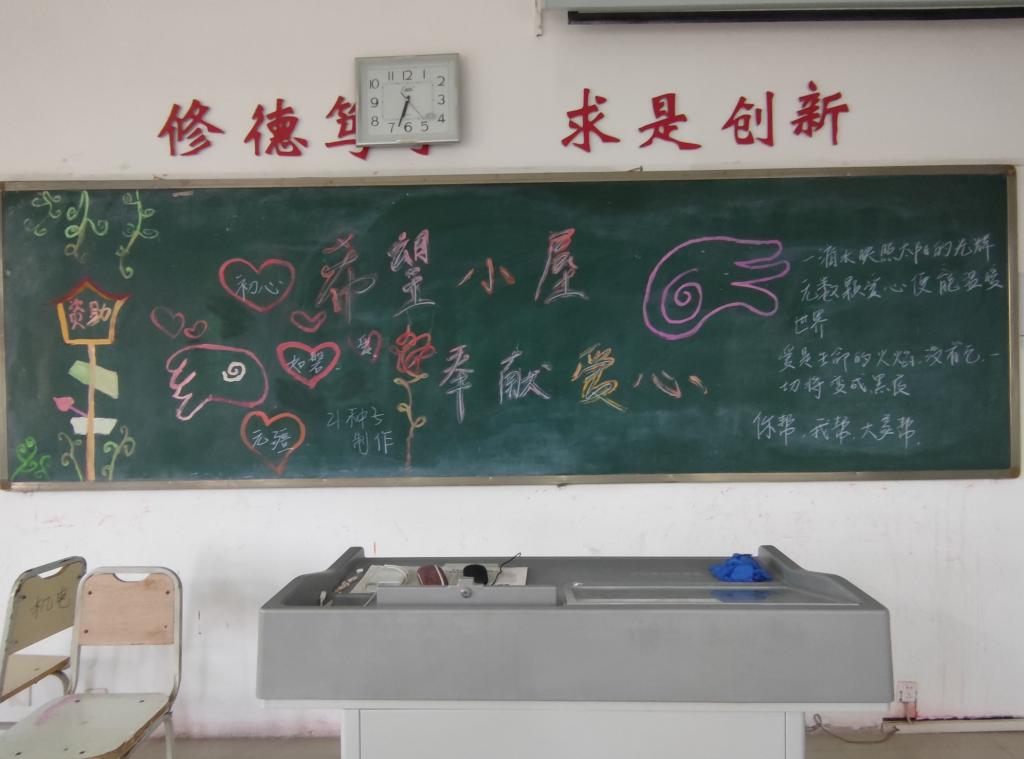 修德笃学 求是创新
12 1 2 3 4 5 6 7 8 9 10 11
希望小屋
奉献爱心
资助
初心
元强
制作
一滴水映照太阳的光辉
无数颗爱心便能温暖
世界
爱是生命的火焰,没有它,一
切将变成黑夜
你帮、我帮、大家帮、
机电